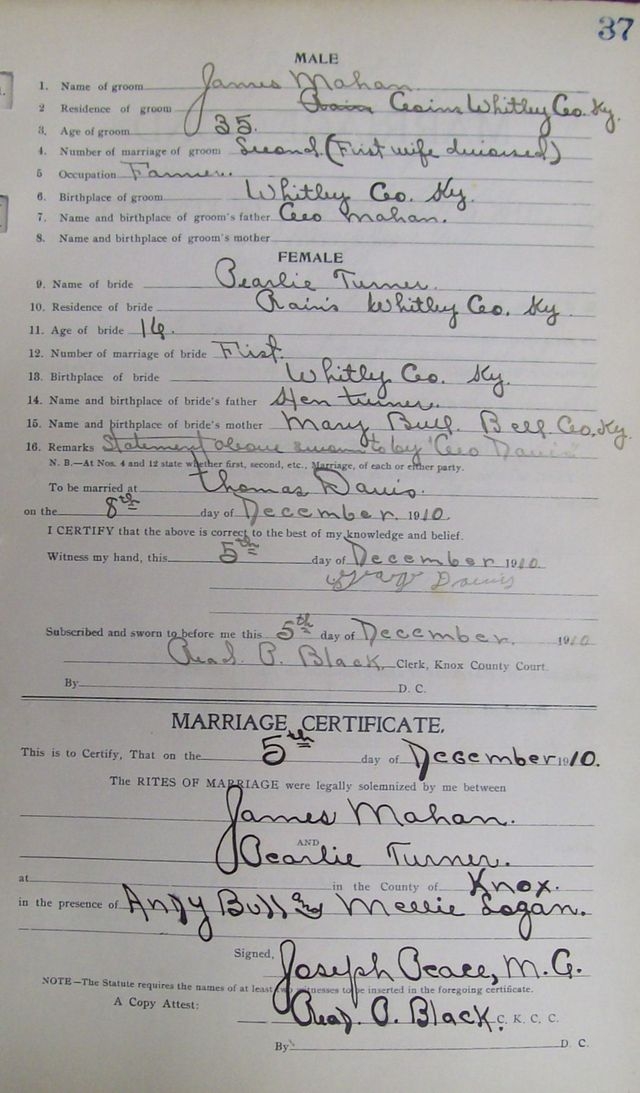 37
MALE
1. Name of groom James Mahan
2 Residence of groom Rains Whitley Co. Ky.
3. Age of groom 35.
4. Number of marriage of groom Second. (First wife divorced)
5 Occupation Farmer.
6. Birthplace of groom Whitley Co. Ky.
7. Name and birthplace of groom's father Geo Mahan.
8. Name and birthplace of groom's mother
FEMALE
9. Name of bride Pearlie Turner.
10. Residence of bride Rains Whitley Co. Ky
11. Age of bride
12. Number of marriage of bride First.
13. Birthplace of bride Whitley Co. Ky.
14. Name and birthplace of bride's father Turner.
15. Name and birthplace of bride's mother Mary Bull. Bell Co. Ky.
16. Remarks Statement above sworn to by Geo Davis
N. B.—At Nos. 4 and 12 state whether first, second, etc., Marriage, of each or either party.
To be married at Thomas Davis.
on the 8th day of December. 1910.
I CERTIFY that the above is correct to the best of my knowledge and belief.
Witness my hand, this 5th day of December 1910
George Davis
Subscribed and sworn to before me this 5th day of December. 1910
Read. P. Black, Clerk, Knox County Court.
By D. C.
MARRIAGE CERTIFICATE.
This is to Certify, That on the 5th day of December 1910.
The RITES OF MARRIAGE were legally solemnized by me between
James Mahan.
AND
Pearlie Turner.
at in the County of Knox.
in the presence of Andy Bull and Mellie Logan.
Signed, Joseph Peace, M. G.
NOTE—The Statute requires the names of at least two witnesses to be inserted in the foregoing certificate.
A Copy Attest:
Read. P. Black. C. K. C. C.
By D. C.